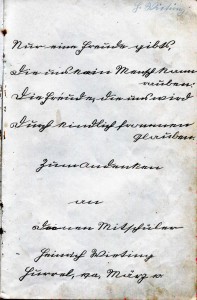 H. Wieting
Nur eine Freude gibts,
Die uns kein Mensch kann
rauben:
Die Freude, die uns wird
Durch kindlich frommen
Glauben.
Zum Andenken
an
deinen Mitschüler
Heinrich Wieting
Hurrel, März